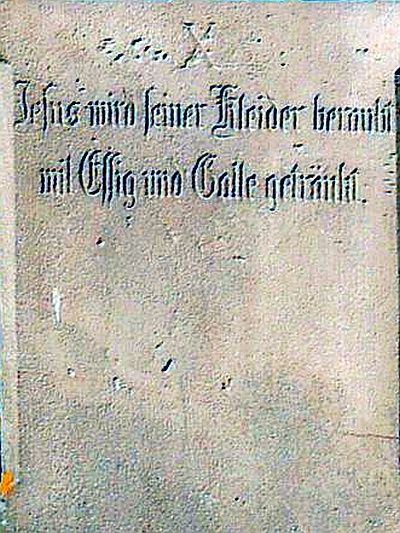 X
Jesus wird seiner Kleider beraubt
mit Essig und Galle getränkt.